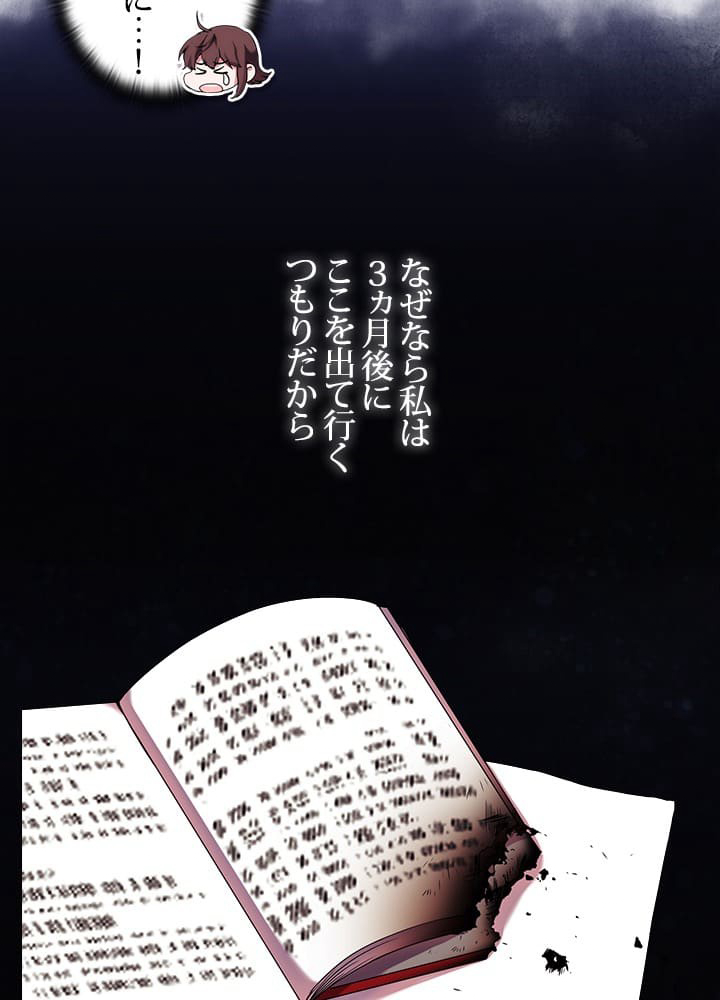 に…！
なぜなら私は
3ヵ月後に
ここを出て行く
つもりだから